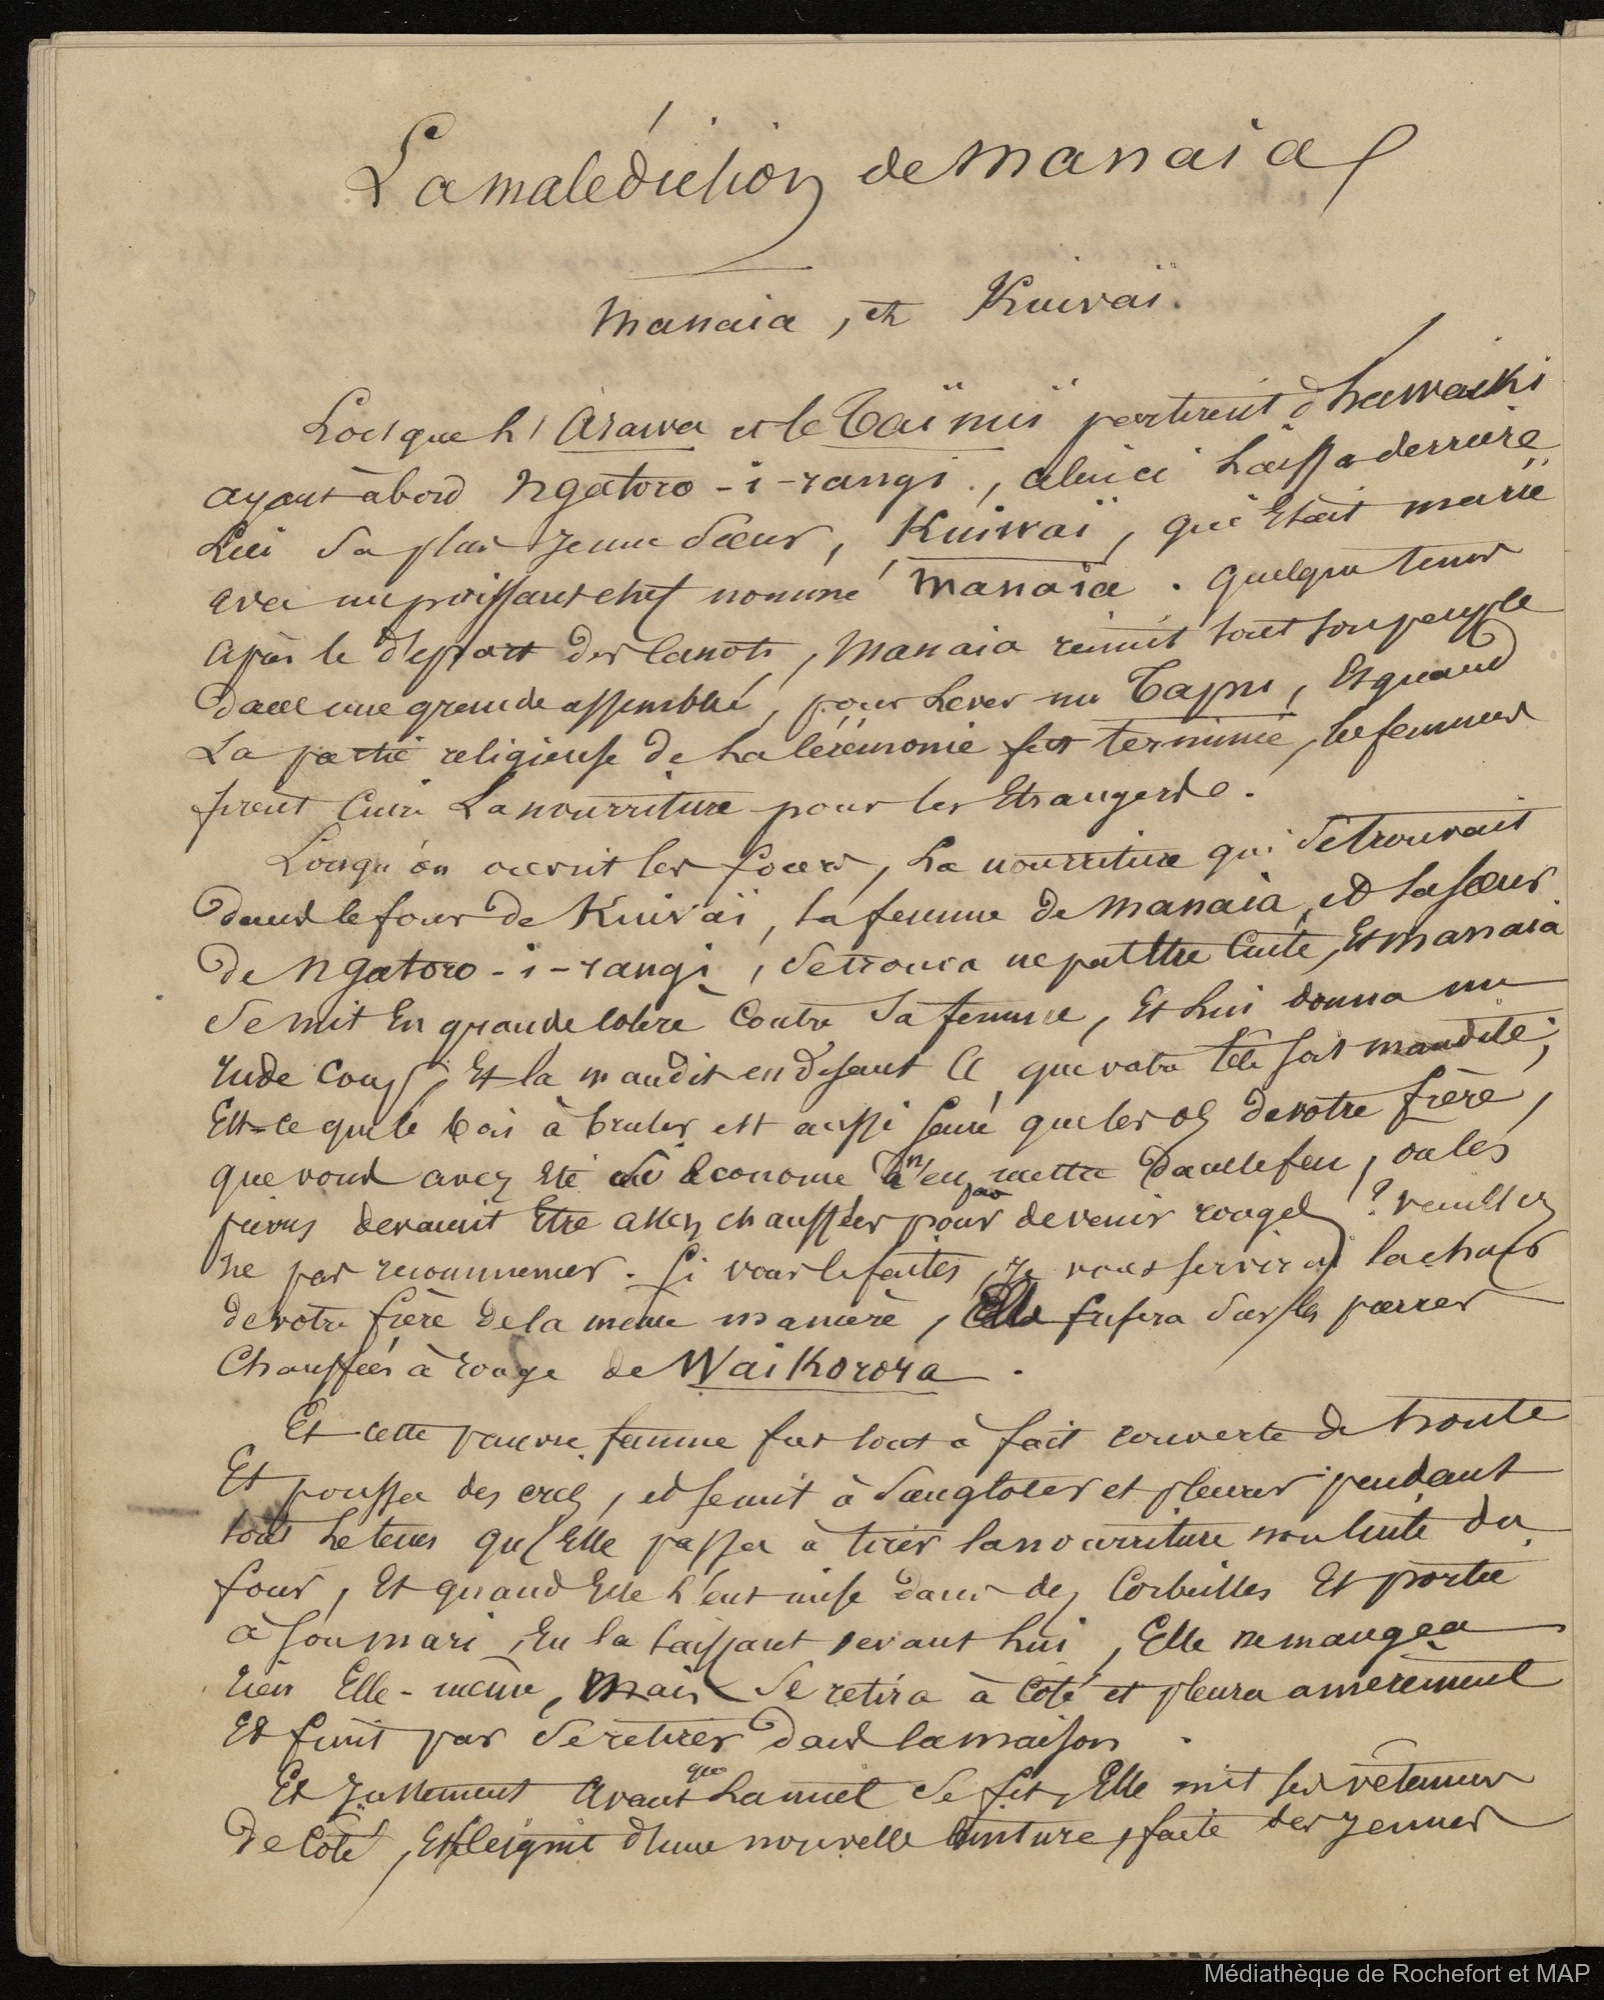 La malédiction de Manaia
Manaia, et Kuiwaï.
Lorsque l'Arawa et le Taïnui partirent d'hawaiki
ayant à bord Ngatoro-i-rangi, celui ci laissa derrière
Lui sa plus jeune sœur, Kuiwaï, qui Etait marié
avec un puissant chef nommé Manaia. quelque tems
après le départ des canots, Manaia réunit tout son peuple
dans une grande assemblée, pour Lever un Tapu, Et quand
La partie religieuse de la cérémonie fut terminie, les femmes
firent Cuire La nourriture pour les Etrangers.
Lorsqu'on ouvrit les fours, La nourriture qui se trouvait
dans le four de Kuiwaï, la femme de Manaia, et la sœur
de Ngatoro-i-rangi, se trouva ne pas être Cuite, Et Manaia
se mit En grande colère Contre sa femme, Et lui donna un
rude coup, Et la maudit en disant que votre tête soit maudite;
Est-ce que le bois à bruler est aussi sacré que les os de votre frère,
que vous avez été si économe à n'en mettre dans le feu, ou les
pierres devaient Etre assez chauffées pour devenir rouges? veuillez
ne pas recommencer. Si vous le faites, je vous servirai la chair
de votre frère de la même manière, Elle frisera sur les pierres
Chauffées à rouge de Waikorora.
Et cette pauvre femme fut tout à fait couverte de honte
Et poussa des cris, et se mit à sangloter et pleurer pendant
tout le tems qu'Elle passa à tirer la nourriture mal cuite du
four, Et quand Elle l'eut mise dans des Corbeilles Et portée
à son mari, En la laissant devant lui, Elle ne mangea
rien Elle-même, Mais se retira à Côté et pleura amèrement
Et finit par se retirer dans la maison.
Et justement avant que la nuit se fit, Elle mit ses vêtemens
de Côté, Et se ceignit d'une nouvelle ceinture, faite des jeunes
Médiathèque de Rochefort et MAP